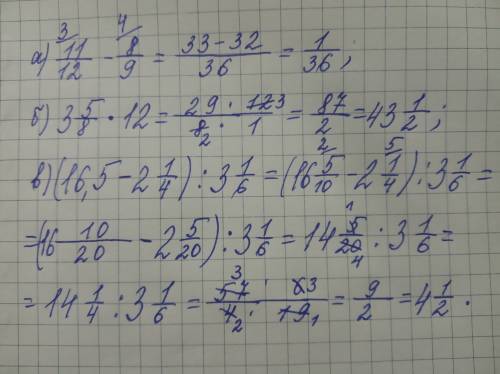 а) ³⁄ 11/12 - ⁴⁄ 8/9 = (33-32)/36 = 1/36;
б) 3 5/8 · 12 = (29 · 12 3)/(8 2 · 1) = 87/2 = 43 1/2;
в) (16,5 - 2 1/4) : 3 1/6 = (16 ²⁄ 5/10 - 2 ⁵⁄ 1/4) : 3 1/6 =
= (16 10/20 - 2 5/20) : 3 1/6 = 14 5 1/20 4 : 3 1/6 =
= 14 1/4 : 3 1/6 = (57 3 · 6 3)/(4 2 · 19 1) = 9/2 = 4 1/2.